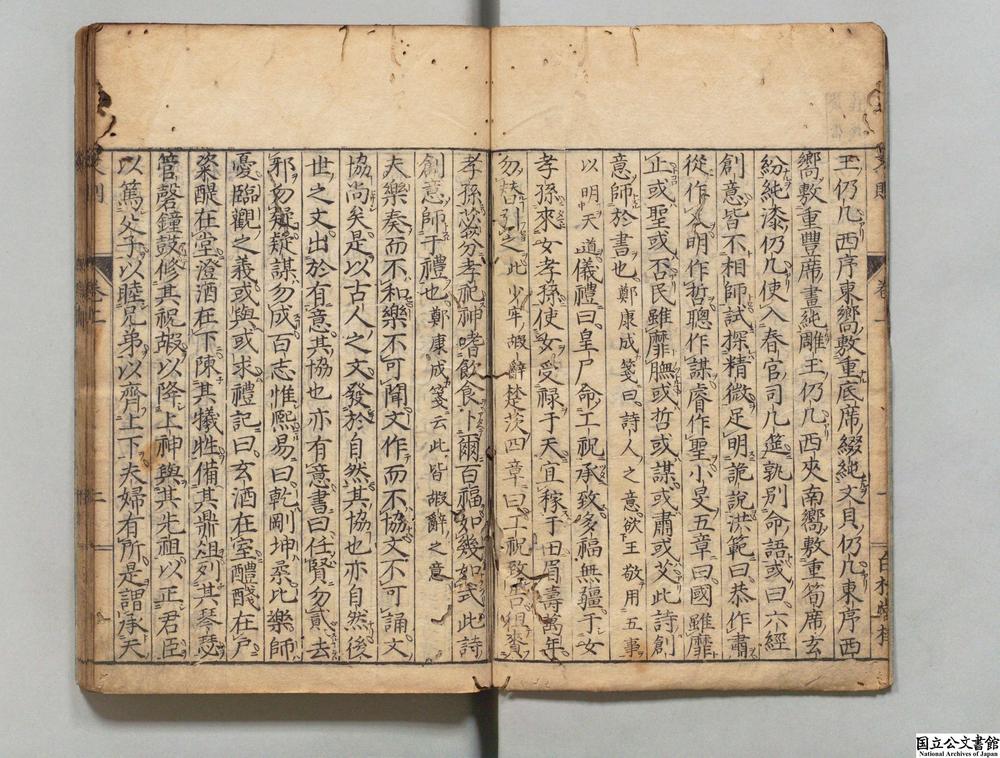 玉仍几西序東嚮敷重底席綴純文貝仍几東序西
嚮敷重豐席畫純雕玉仍几西夾南嚮敷重筍席玄
紛純漆仍几使入春官司几筵孰別命語或曰六經
創意皆不相師試探精微足明詭說洪範曰恭作肅
從作乂明作哲聰作謀睿作聖小旻五章曰國雖靡
止或聖或否民雖靡膴或哲或謀或肅或艾此詩創
意師於書也鄭康成箋曰詩人之意欲王敬用五事
以明天道儀禮曰皇尸命工祝承致多福無疆于女
孝孫來女孝孫使女受祿于天宜稼于田眉壽萬年
勿替引之此少牢嘏辭楚茨四章曰工祝致告徂賚
孝孫苾芬孝祀神嗜飲食卜爾百福如幾如式此詩
創意師于禮也鄭康成箋云此皆嘏辭之意
夫樂奏而不和樂不可聞文作而不協文不可誦文
協尚矣是以古人之文發於自然其協也亦自然後
世之文出於有意其協也亦有意書曰任賢勿貳去
邪勿疑疑謀勿成百志惟熙易曰乾剛坤柔比樂師
憂臨觀之義或與或求禮記曰玄酒在室醴醆在戶
粢醍在堂澄酒在下陳其犧牲備其鼎俎列其琴瑟
管磬鐘鼓修其祝嘏以降上神與其先祖以正君臣
以篤父子以睦兄弟以齊上下夫婦有所是謂承天
国立公文書館
National Archives of Japan